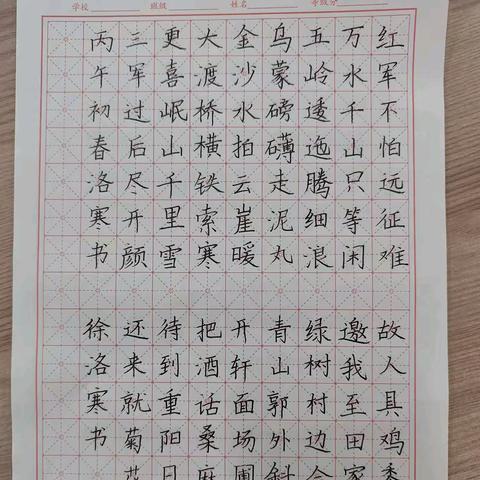 学校 班级 姓名 等级分
红军不怕远征难
万水千山只等闲
五岭逶迤腾细浪
乌蒙磅礴走泥丸
金沙水拍云崖暖
大渡桥横铁索寒
更喜岷山千里雪
三军过后尽开颜
丙午初春洛寒书
故人具鸡黍
邀我至田家
绿树村边合
青山郭外斜
开轩面场圃
把酒话桑麻
待到重阳日
还来就菊花
徐洛寒书